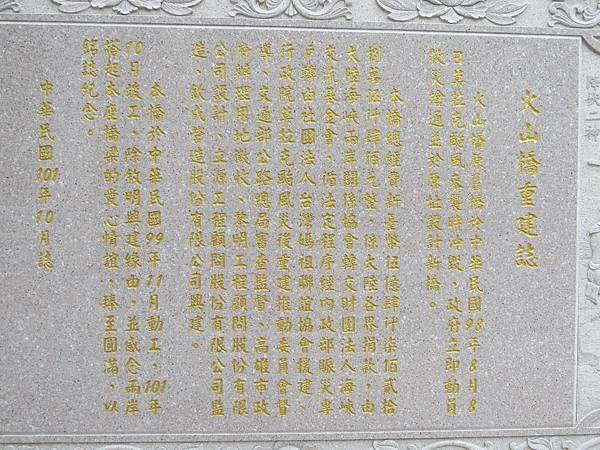 火山橋重建誌
火山橋原舊橋於中華民國98年8月8
日莫拉克颱風來襲時沖毀，政府立即動員
救災搶通並於原址設計新橋。
本橋總經費新臺幣伍億肆仟柒佰貳拾
捌萬伍仟肆佰元整，係大陸各界捐款，由
大陸海峽兩岸關係協會轉交財團法人海峽
交流基金會，循法定程序經內政部賑災專
戶撥由社團法人台灣媽祖聯誼會援建、
行政院莫拉克颱風災後重建推動委員會督
導、交通部公路總局審查監督、高雄市政
府辦理用地徵收、黎明工程顧問股份有限
公司設計、立源工程顧問股份有限公司監
造、欽成營造股份有限公司興建。
本橋於中華民國99年11月動工，101年
10月竣工，除敘明興建緣由，並感念兩岸
搭起本座橋梁的愛心情誼，臻至圓滿，以
銘誌紀念。
中華民國101年10月誌